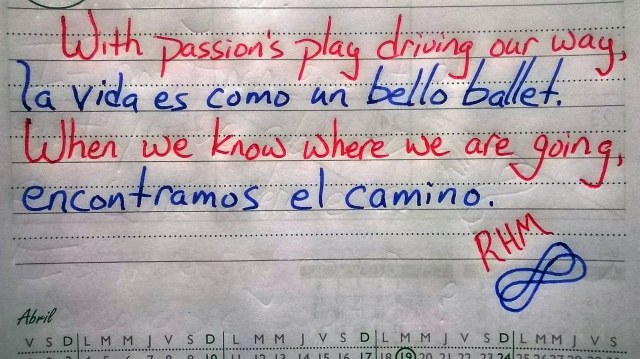 With passion's play driving our way,
la vida es como un bello ballet.
When we know where we are going,
encontramos el camino.
RHM
Abril
V S D L M M J V S D L M M J V S D L M M J V S D L M M J V S
17 18 19 20 21 22 23 24